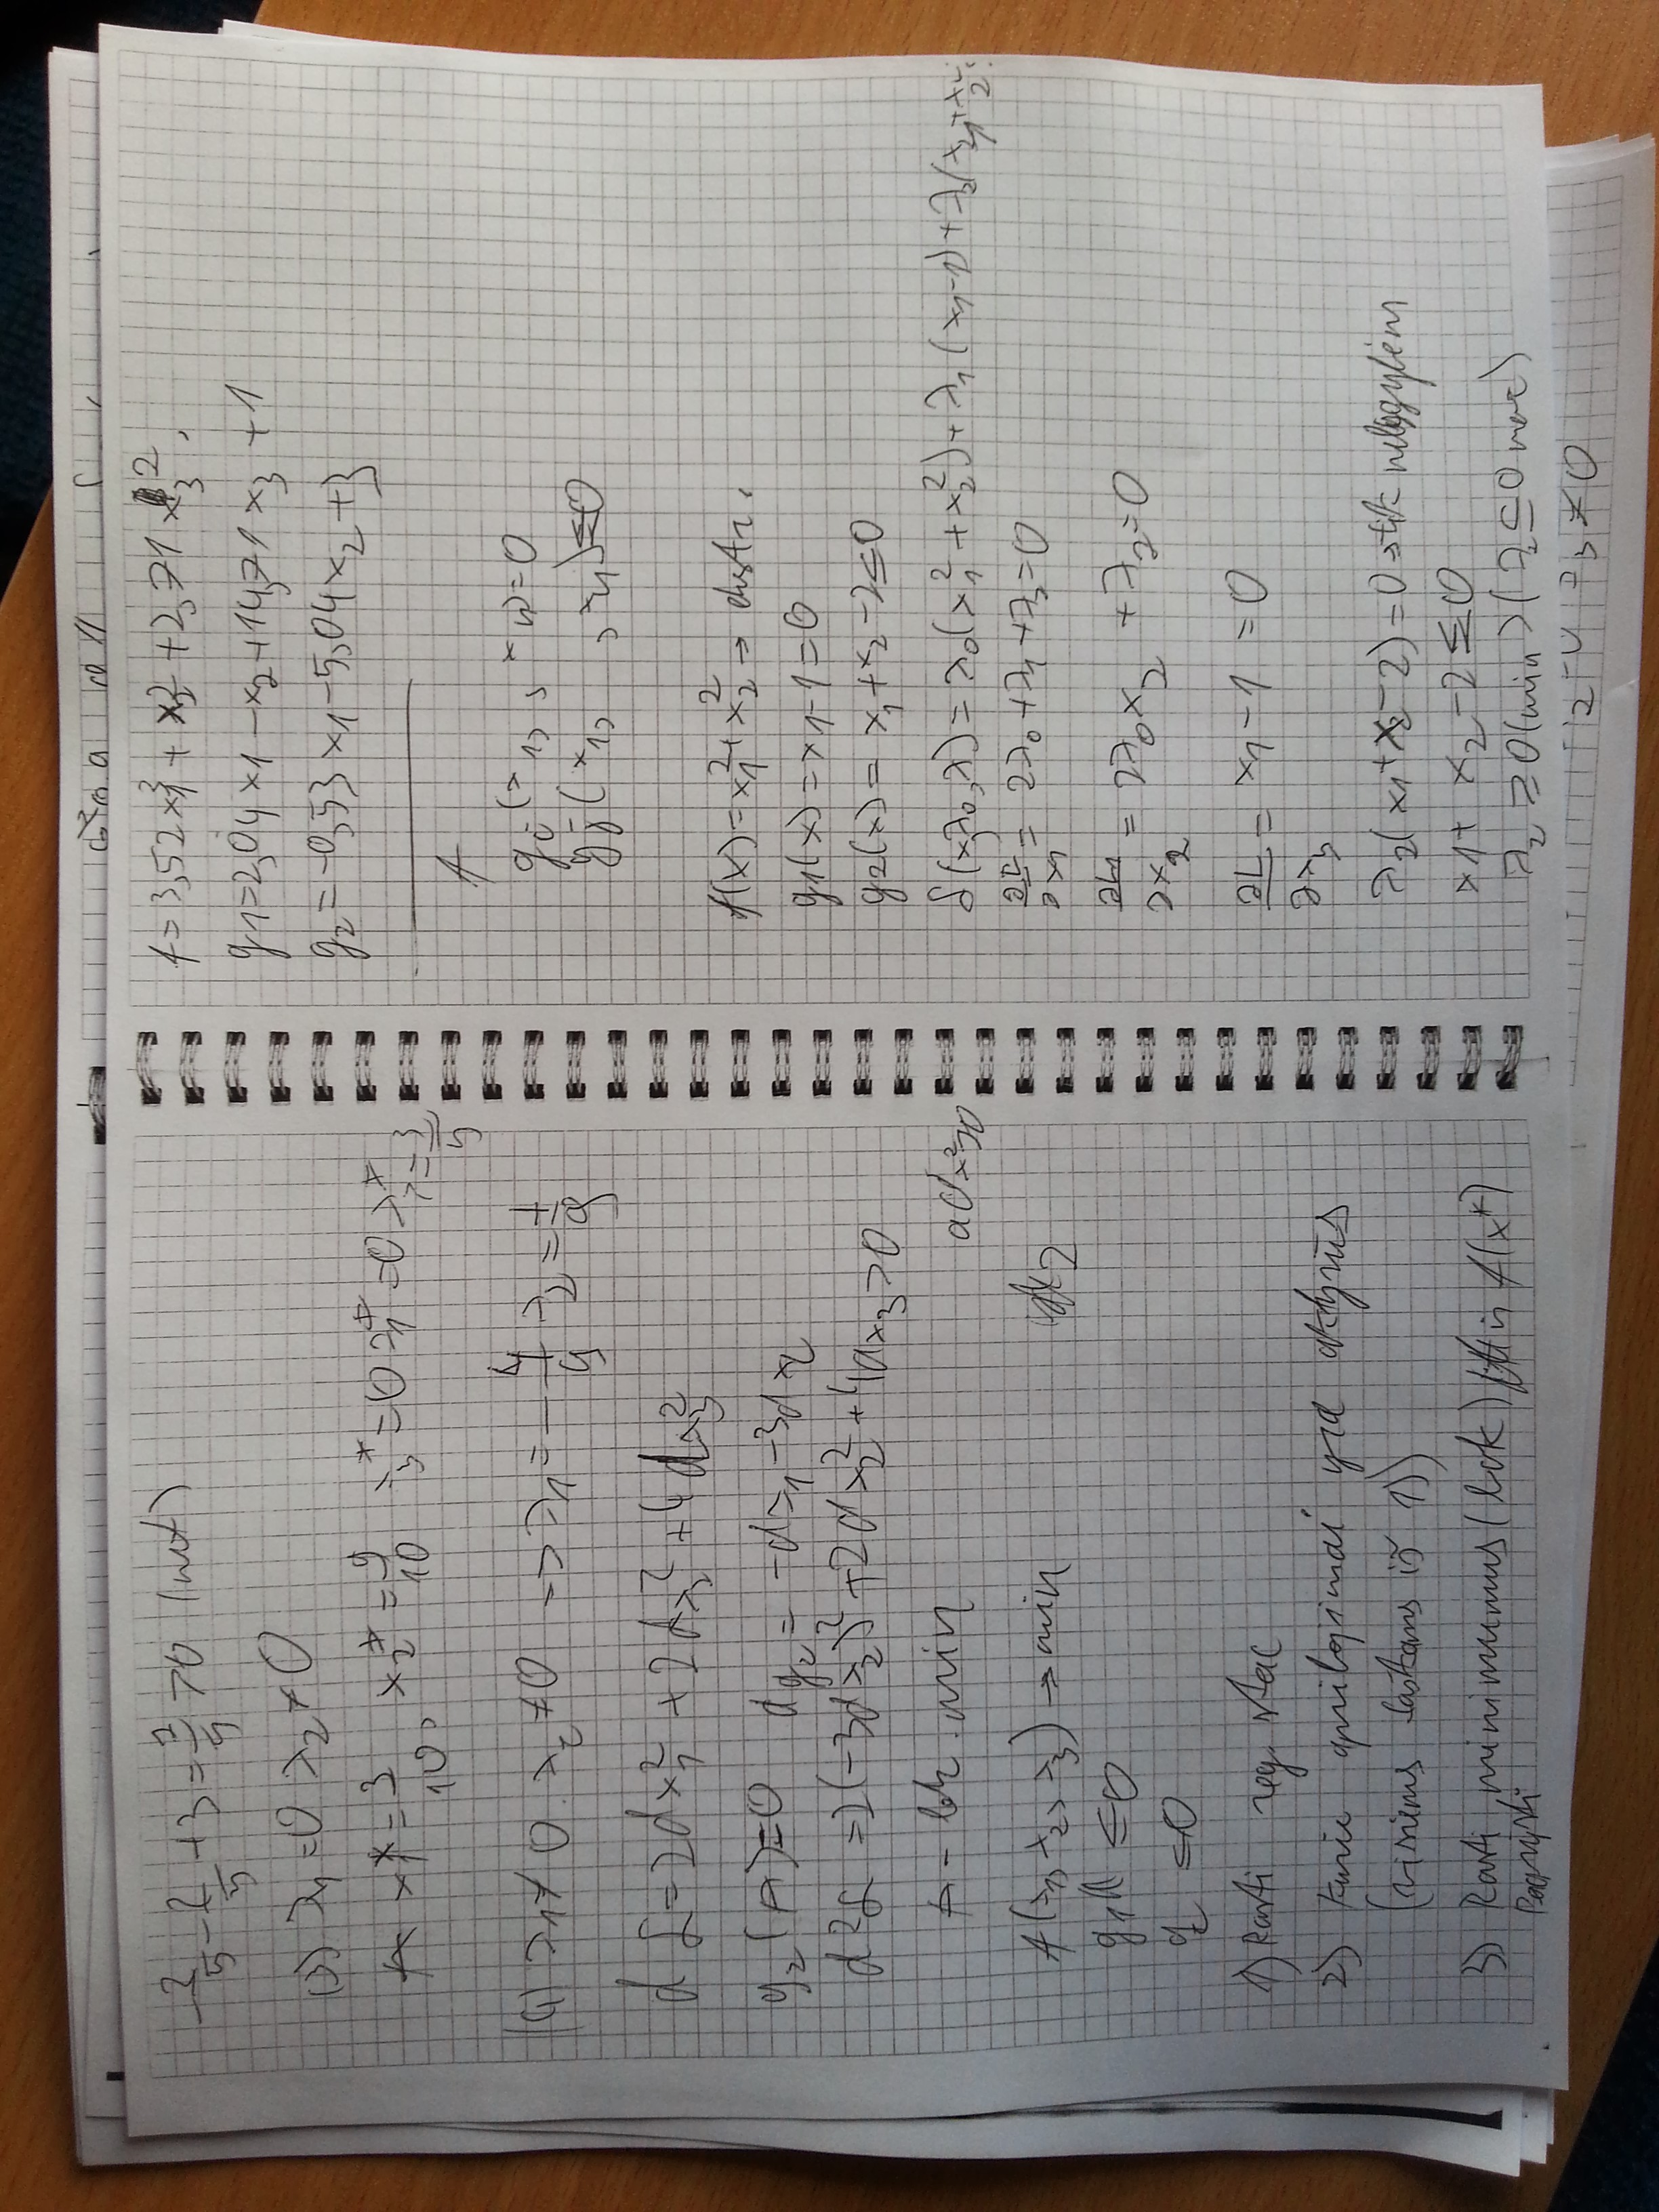 -2/5 - 2/5 + 3 = 7/5 > 0 (not)
(3) λ1 = 0 λ2 ≠ 0
A x1* = 3/10, x2* = 9/10 x3* = 0 λ1* = 0 λ2* = 3/5
(4) λ1 ≠ 0 λ2 ≠ 0 -> λ1 = -4/9 λ2 = 1/9
d L = 2dx1² + 2dx2² + 4dx3²
g2(A) = 0 dg2 = -dx1 - 3dx2
d²L = 2(-3dx2)² + 2dx2² + 4dx3 > 0
A - lok. min
adx²>0
f(x1, x2, x3) -> min
dx2
g1() ≤ 0
g2 ≤ 0
1) Rasti reg. stac
2) Kurie apribojimai yra aktyvūs
(visiems taškams iš 1))
3) Rasti minimumus (lok) f(x*)
f = 3,52x1² + x2² + 2,71x3²,
g1 = 2,04x1 - x2 + 14,71x3 + 1
g2 = -0,53x1 - 5,04x2 + 3
f
gi(x1, , xn) = 0
gj(x1, , xn) ≤ 0
f(x) = x1² + x2² → extr.
g1(x) = x1 - 1 = 0
g2(x) = x1 + x2 - 2 ≤ 0
L(x, λ0, λ) = λ0(x1² + x2²) + λ1(x1 - 1) + λ2(x1 + x2 -
∂L/∂x1 = 2λ0 + λ1 + λ3 = 0
∂L/∂x2 = 2λ0x2 + λ2 = 0
∂L/∂λ3 = x1 - 1 = 0
λ2(x1 + x2 - 2) = 0 → tik nelygybėm
x1 + x2 - 2 ≤ 0
λ2 ≥ 0 (min) (λ2 ≤ 0 max)
≠ 0